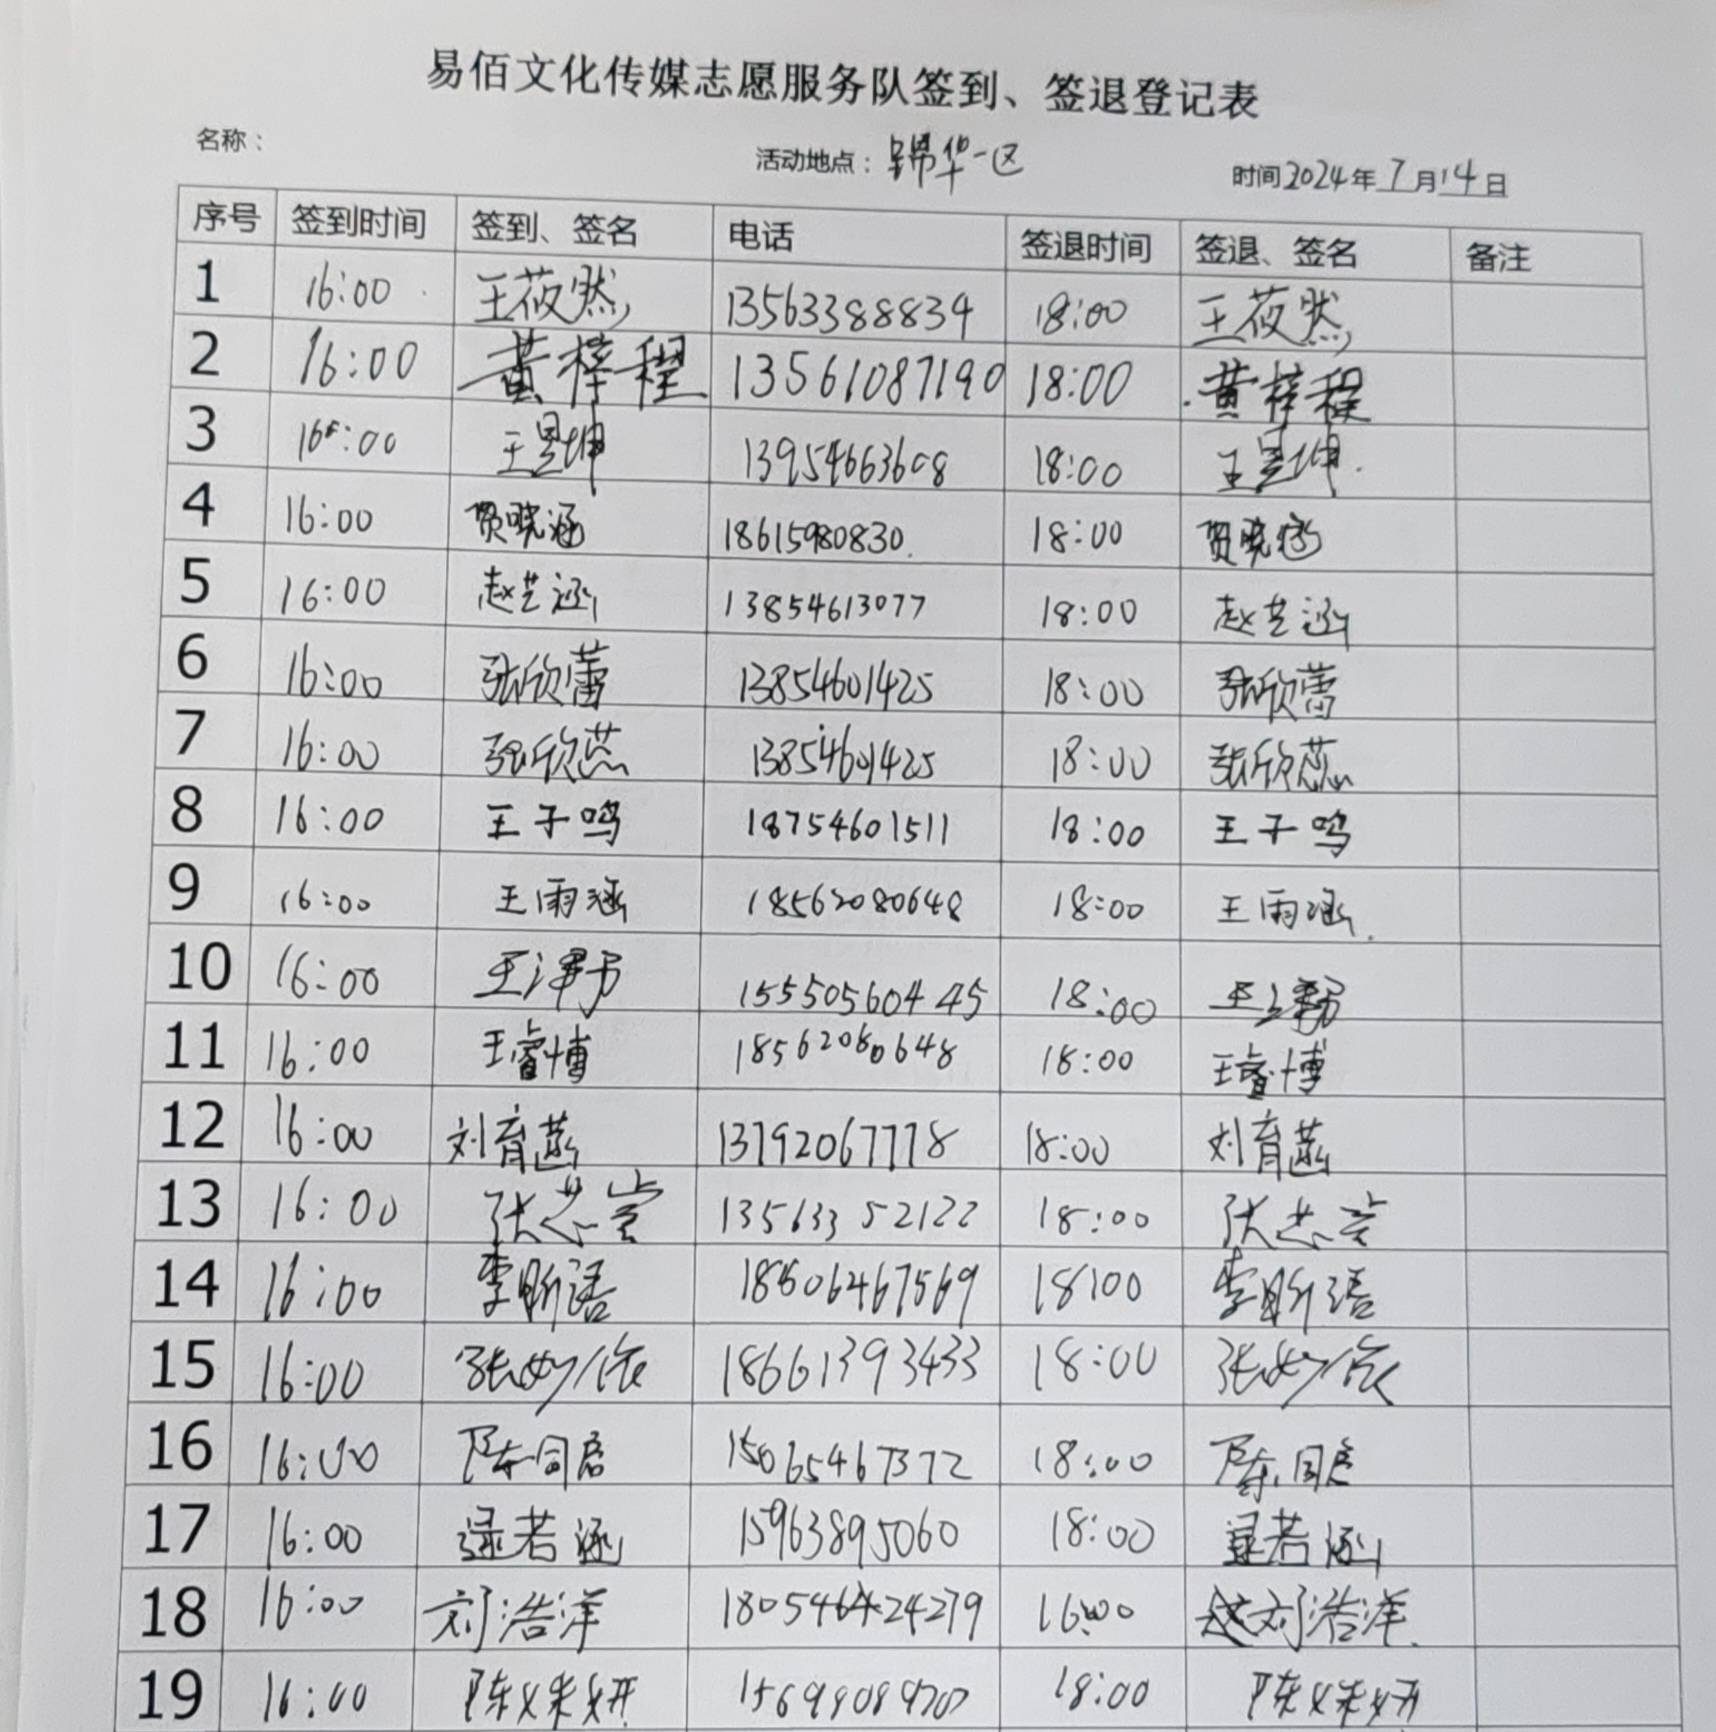 易佰文化传媒志愿服务队签到、签退登记表
名称： 活动地点：锦华一区 时间2024年7月14日
序号 签到时间 签到、签名 电话 签退时间 签退、签名 备注
1 16:00 王莜然 13563388834 18:00 王莜然
2 16:00 黄梓程 13561087190 18:00 黄梓程
3 16:00 王昱坤 13954663608 18:00 王昱坤
4 16:00 贾晓涵 18615980830 18:00 贾晓涵
5 16:00 赵艺涵 13854613077 18:00 赵艺涵
6 16:00 张欣蕾 13854601425 18:00 张欣蕾
7 16:00 张欣蕊 13854601425 18:00 张欣蕊
8 16:00 王子鸣 18754601511 18:00 王子鸣
9 16:00 王雨涵 18562080648 18:00 王雨涵
10 16:00 18:00
11 16:00 王睿博 18562080648 18:00 王睿博
12 16:00 刘育菡 13792067778 18:00 刘育菡
13 16:00 13563352122 18:00
14 16:00 李昕语 18506467569 18:00 李昕语
15 16:00 张妙依 18661393433 18:00 张妙依
16 16:00 陈同启 15065467372 18:00 陈同启
17 16:00 逯若涵 15963895060 18:00 逯若涵
18 16:00 刘浩洋 16:00 刘浩洋
19 16:00 18:00